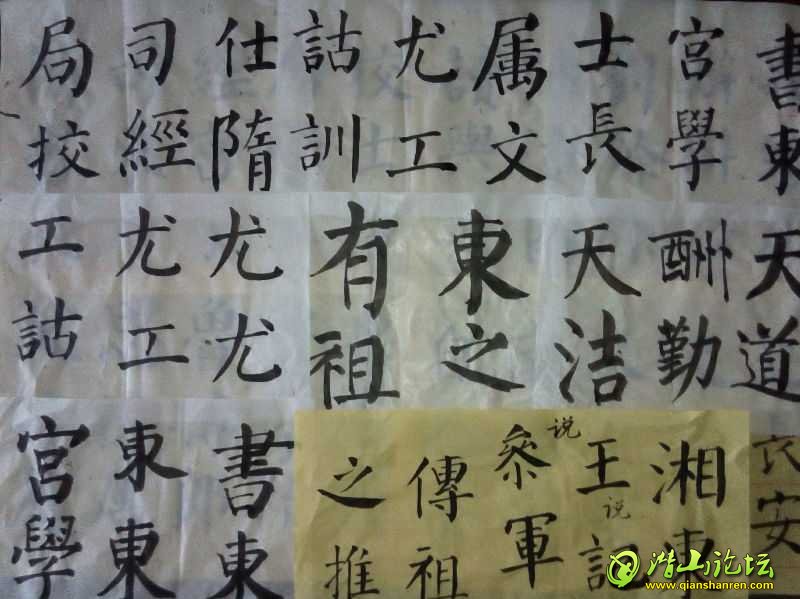 書東
宮學
士長
属文
尤工
詁訓
仕隋
司經
局挍
天道
酬勤
天洁
東之
有祖
尤尤
尤工
工詁
安
湘東
王記
说
说
參軍
傳祖
之推
書東
東東
宮學
潜山论坛
www.qianshanren.com